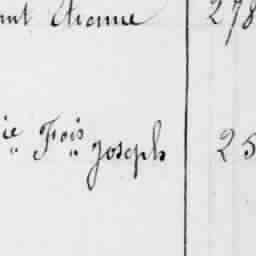 ant Etienne 278
ie Fois Joseph 25